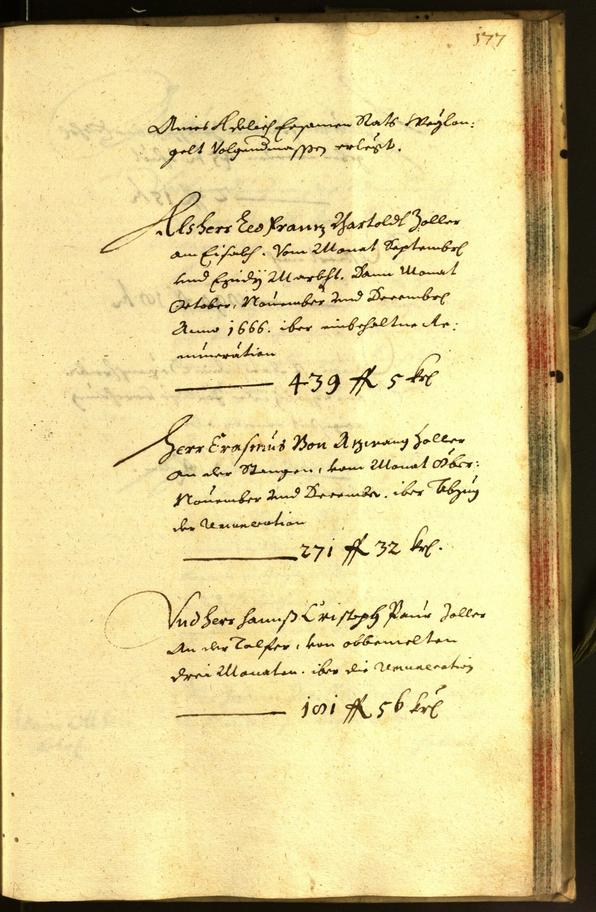 177
Aines Adelich Ersamen Rats Weglon:
gelt Volgundmassen erlegt.
Als Herr Leo Franz Hartoldt Zoller
am Eisakh. Vom Monat Septembris
und Egidÿ Markht. Dann Monat
October, November und Decembris
Anno 1666. iber einbehaltne Re:
muneration
439 fl 5 krl
Herr Erasmus Von Atzwang Zoller
an der Stangen, vom Monat October:
November und December. iber Abzug
der remuneration
271 fl 32 krl.
Und Herr Hannß Cristoph Paur Zoller
An der Talfer, von obbemelten
drei Monaten. iber die remuneration
181 fl 56 krl